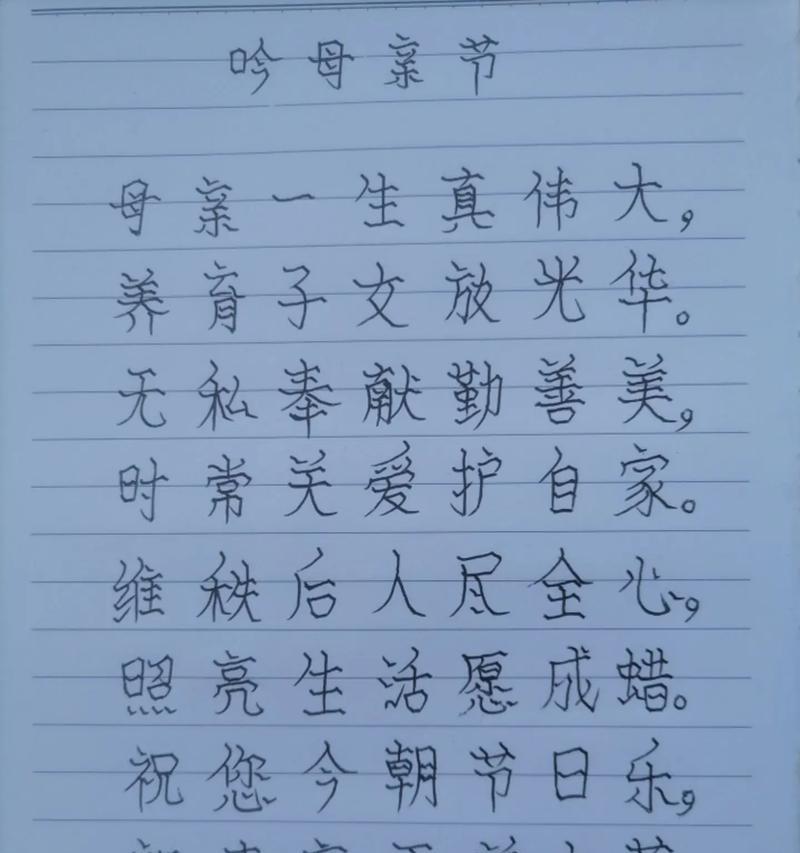 吟母亲节
母亲一生真伟大,
养育子女放光华。
无私奉献勤善美,
时常关爱护自家。
维秩后人尽全心,
照亮生活愿成蜡。
祝您今朝节日乐,